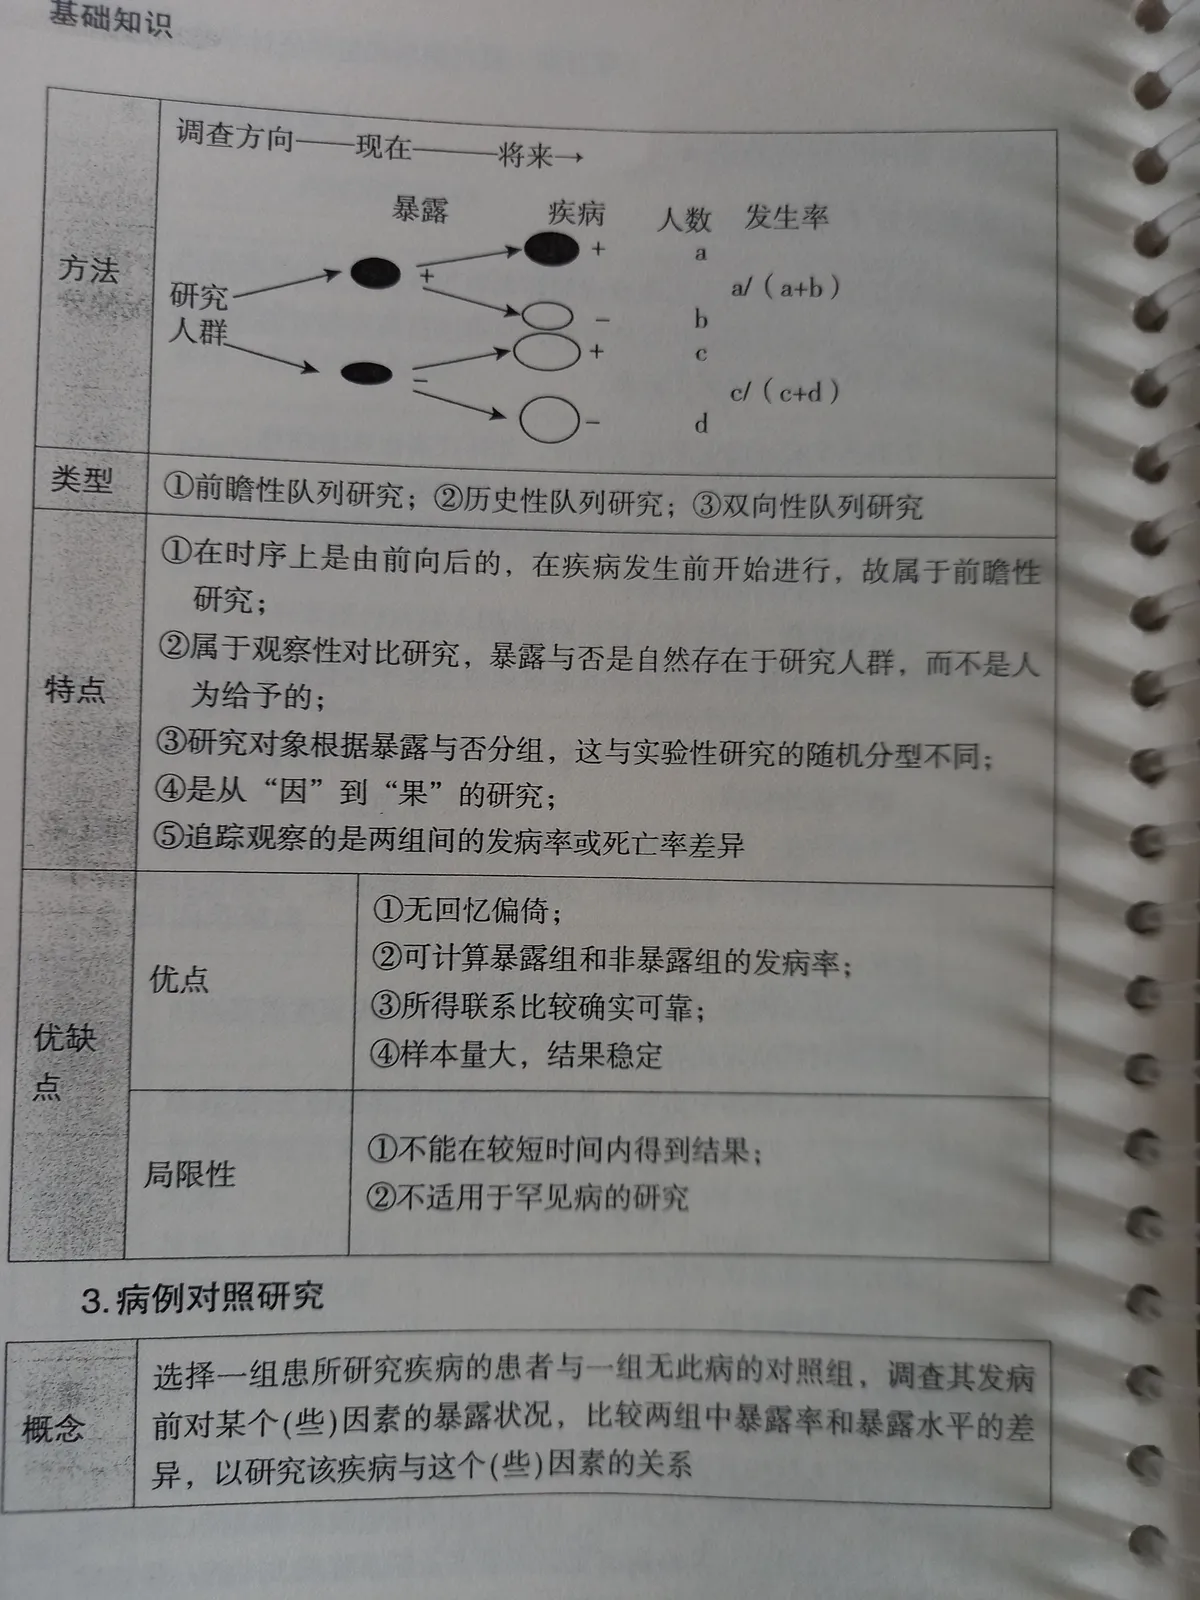 基础知识
调查方向——现在———将来→
暴露 疾病 人数 发生率
方法
+ a
+
a/（a+b）
研究
人群
- b
+ c
-
c/（c+d）
- d
类型
①前瞻性队列研究；②历史性队列研究；③双向性队列研究
特点
①在时序上是由前向后的，在疾病发生前开始进行，故属于前瞻性
研究；
②属于观察性对比研究，暴露与否是自然存在于研究人群，而不是人
为给予的；
③研究对象根据暴露与否分组，这与实验性研究的随机分型不同；
④是从“因”到“果”的研究；
⑤追踪观察的是两组间的发病率或死亡率差异
优缺
点
优点
①无回忆偏倚；
②可计算暴露组和非暴露组的发病率；
③所得联系比较确实可靠；
④样本量大，结果稳定
局限性
①不能在较短时间内得到结果；
②不适用于罕见病的研究
3.病例对照研究
概念
选择一组患所研究疾病的患者与一组无此病的对照组，调查其发病
前对某个(些)因素的暴露状况，比较两组中暴露率和暴露水平的差
异，以研究该疾病与这个(些)因素的关系